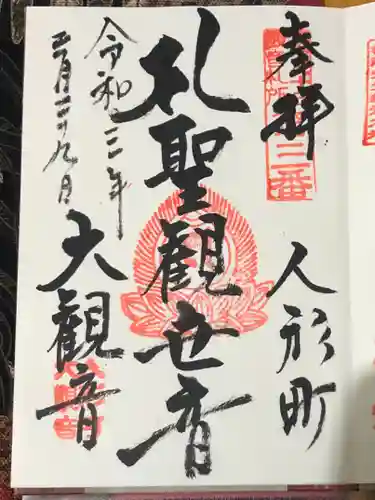 奉拝
三番
人形町
礼聖観世音
令和三年
月二十九日
大観音